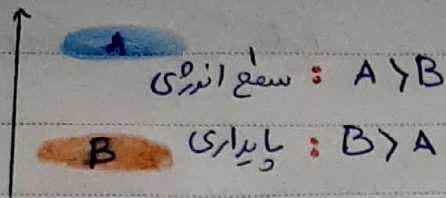 A
سطح انرژی : A > B
B
پایداری : B > A